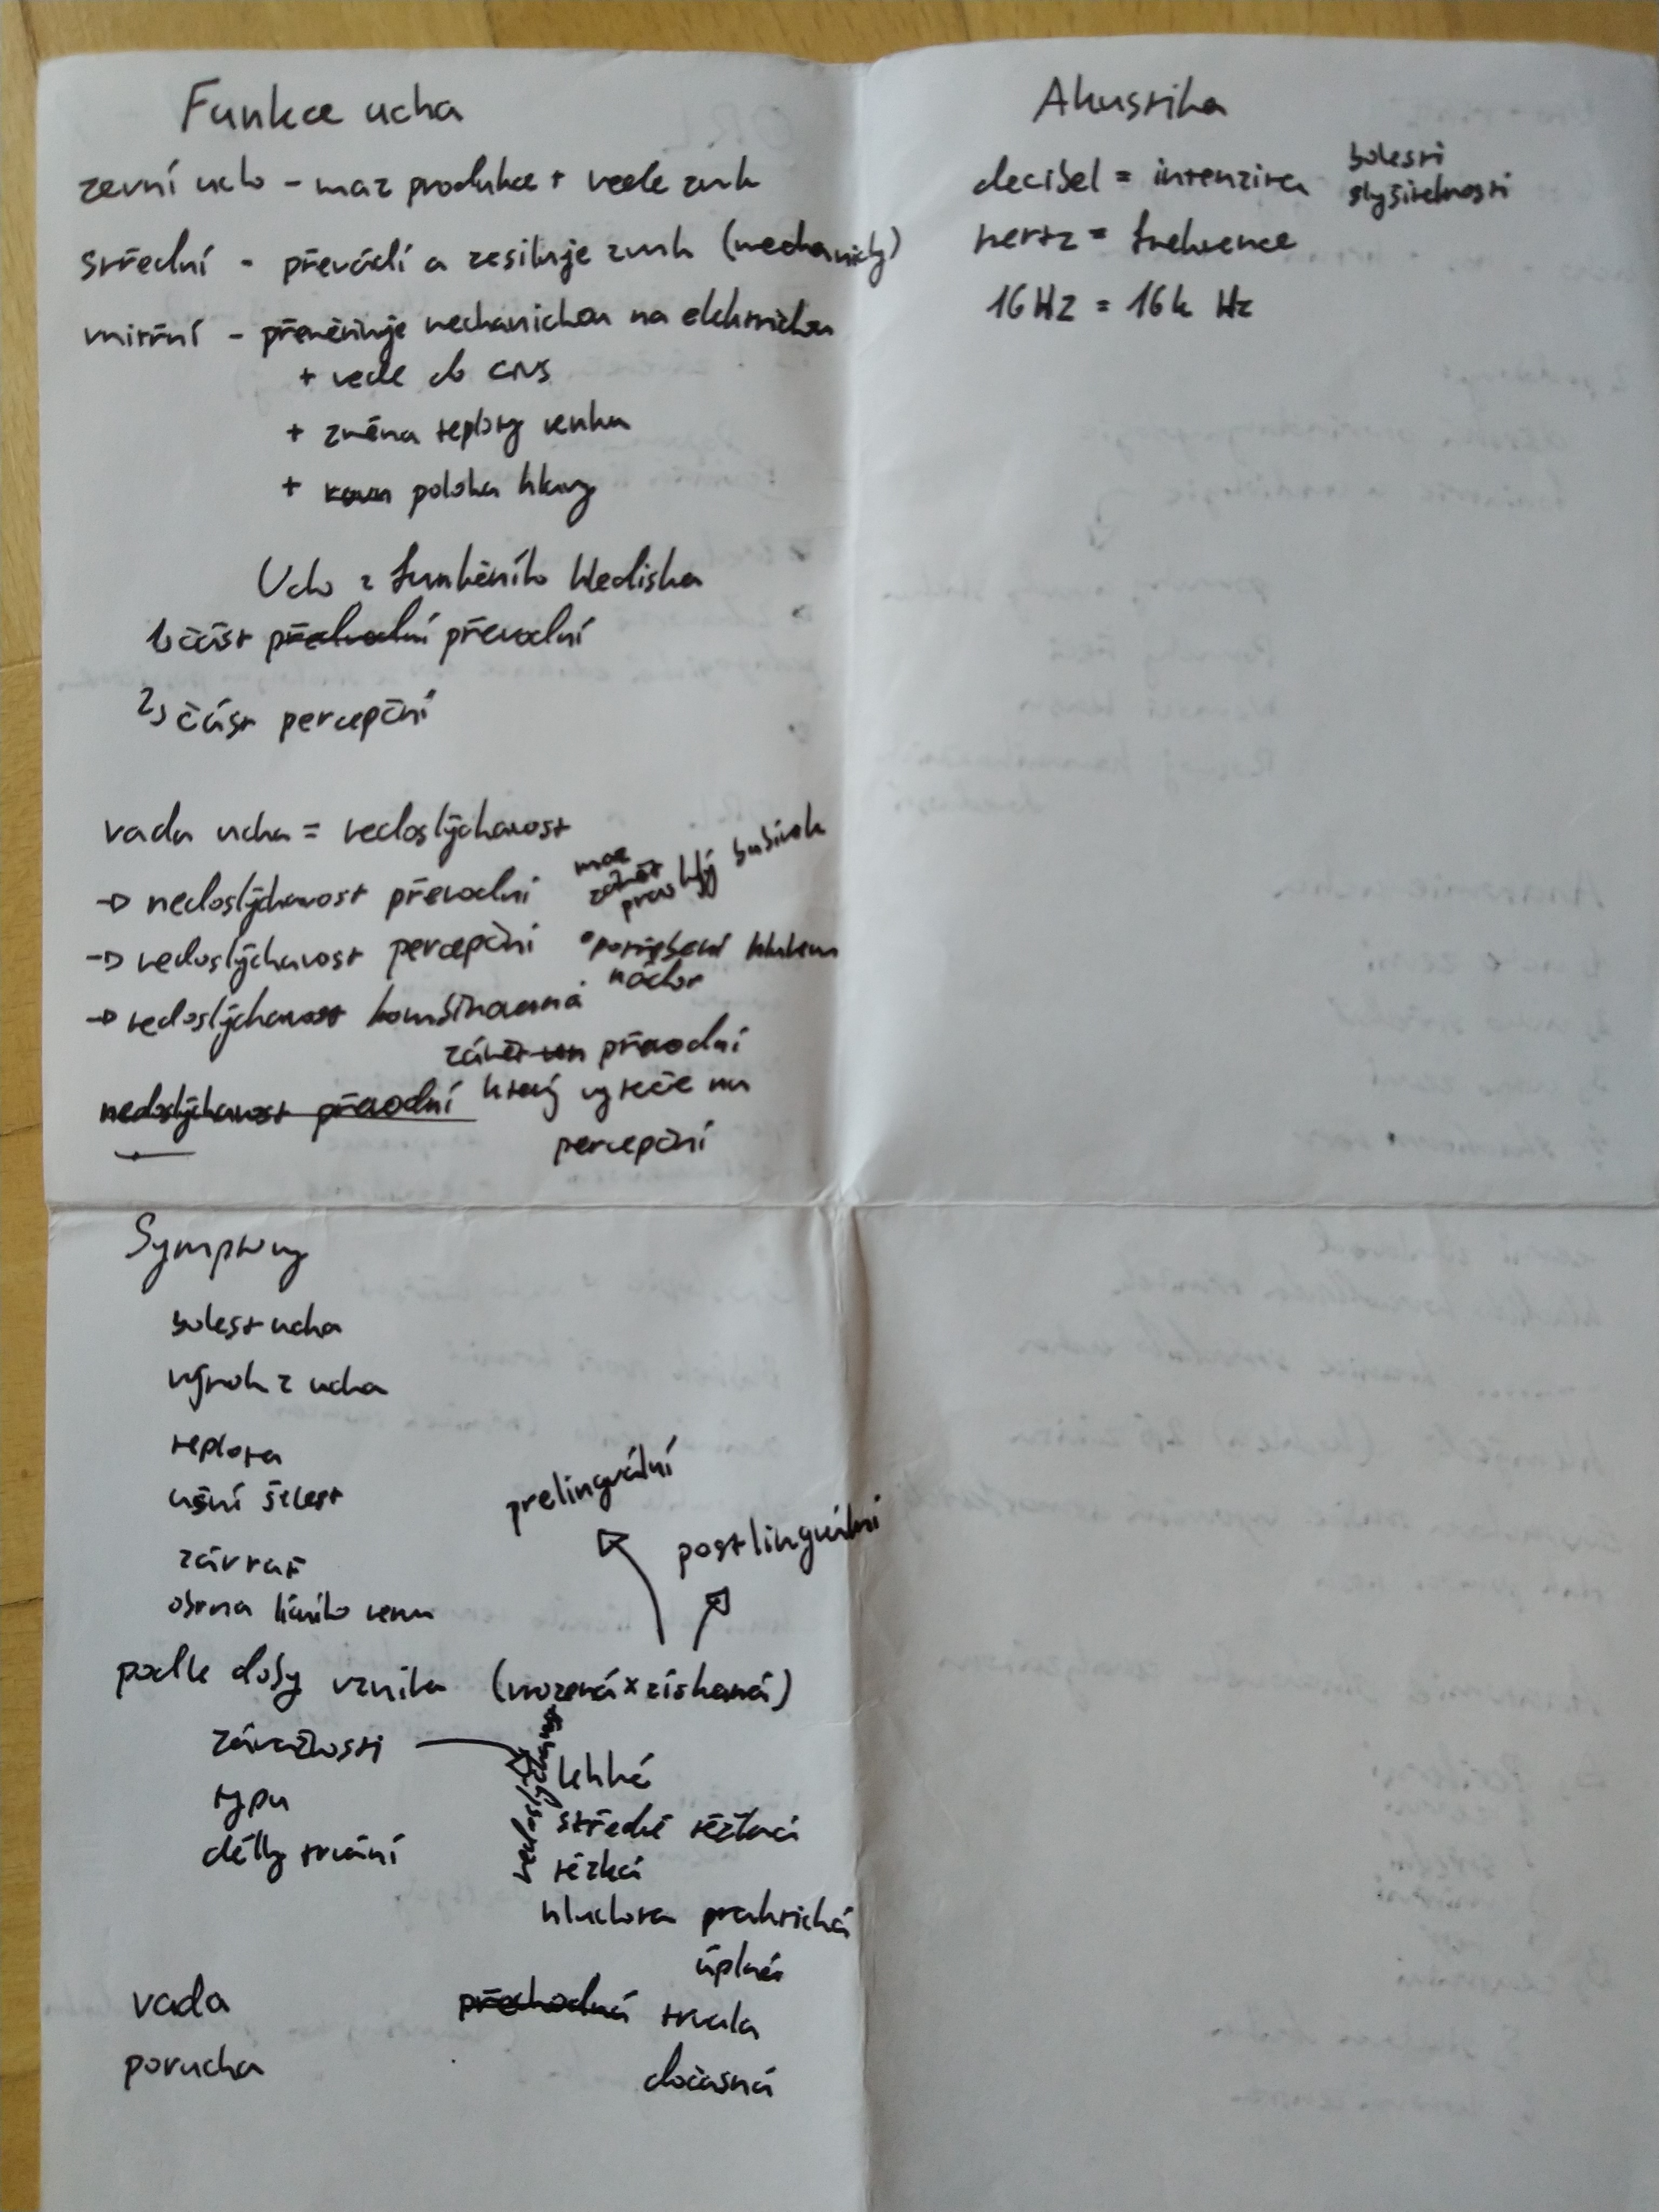 Funkce ucha
zevní ucho - maz produkce + vede zvuk
střední - převádí a zesiluje zvuk (mechanicky)
vnitřní - přeměňuje mechanickou na elektrickou
+ vede do CNS
+ změna teploty venku
+ poloha hlavy
Ucho z funkčního hlediska
1) část předvodní převodní
2) část percepční
vada ucha = nedoslýchavost
→ nedoslýchavost převodní
maz
zánět
prasklý bubínek
→ nedoslýchavost percepční
• postižení hlukem
nádor
→ nedoslýchavost kombinovaná
zánět převodní
který vyteče na
percepční
nedoslýchavost převodní
Symptomy
bolest ucha
výtok z ucha
teplota
ušní šelest
závrať
obrna lícního nervu
prelinguální
postlinguální
podle doby vzniku (vrozená x získaná)
závažnosti
typu
délky trvání
nedoslýchavost
lehká
středně těžká
těžká
hluchota praktická
úplná
vada přechodná trvala
porucha dočasná
Akustika
decibel = intenzita
bolesti
slyšitelnosti
hertz = frekvence
16 Hz = 16k Hz